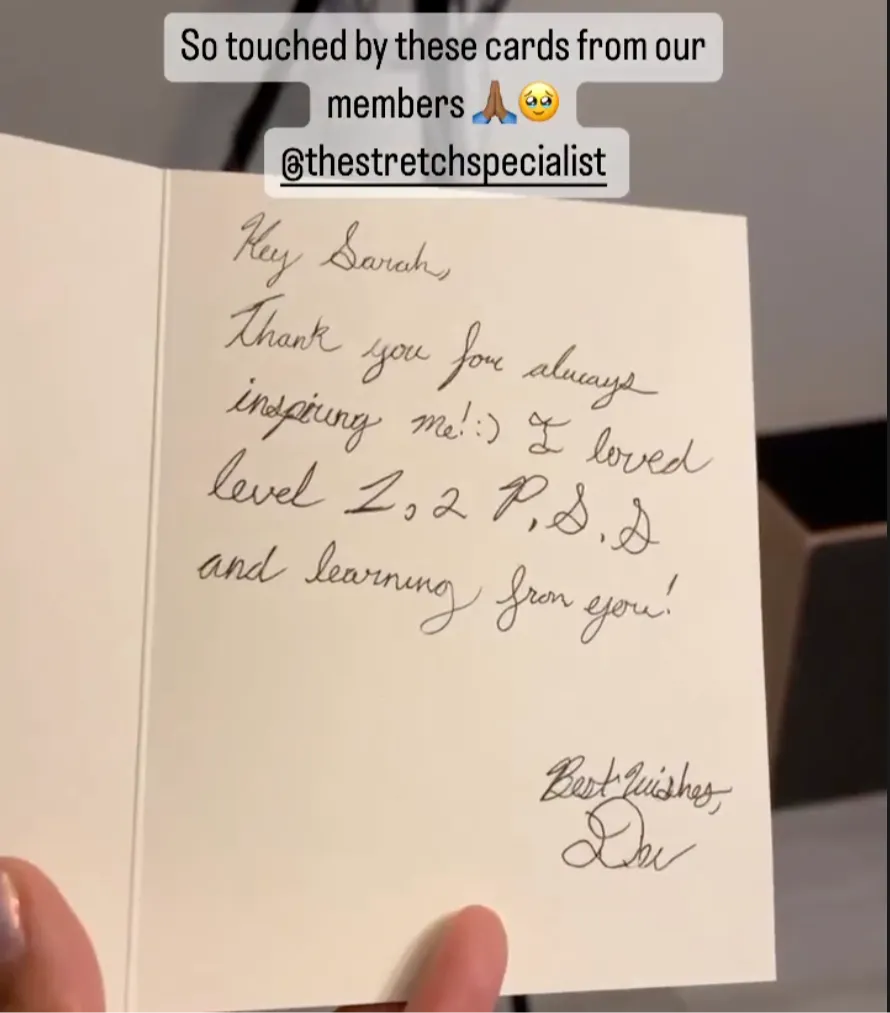 So touched by these cards from our
members 🙏🏾🥹
@thestretchspecialist
Hey Sarah,
Thank you for always
inspiring me! :) I loved
level 1, 2 P, S, S
and learning from you!
Best Wishes,